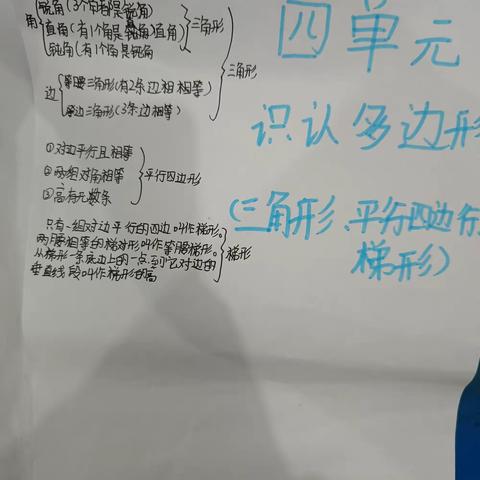 角 锐角(3个角都是锐角)
直角(有1个角是直角) 三角形
钝角(有1个角是钝角
三角形
边 等腰三角形(有2条边相相等)
等边三角形(3条边相等)
①对边平行且相等
②两组对角相等 平行四边形
③高有无数条
只有一组对边平行的四边叫作梯形。
两腰相等的梯对形叫作等腰梯形。
从梯形一条底边上的一点到它对边的 梯形
垂直线段叫作梯形的高
四单元
识认多边形
(三角形、平行四边行
梯形)